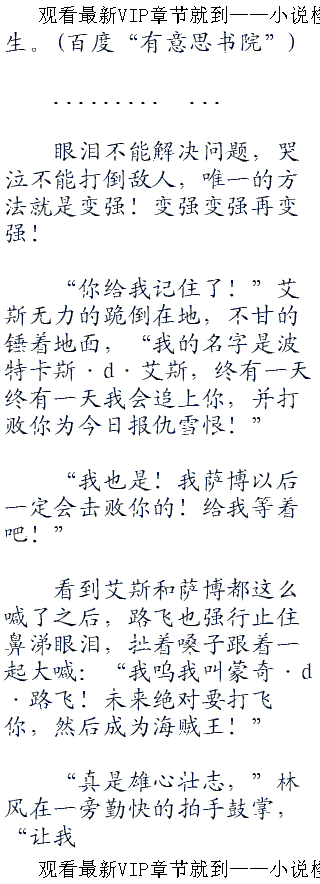 观看最新VIP章节就到——小说检
生。(百度“有意思书院”)
......... ...
眼泪不能解决问题，哭
泣不能打倒敌人，唯一的方
法就是变强！变强变强再变
强！
“你给我记住了！”艾
斯无力的跪倒在地，不甘的
锤着地面，“我的名字是波
特卡斯·d·艾斯，终有一天
终有一天我会追上你，并打
败你为今日报仇雪恨！”
“我也是！我萨博以后
一定会击败你的！给我等着
吧！”
看到艾斯和萨博都这么
喊了之后，路飞也强行止住
鼻涕眼泪，扯着嗓子跟着一
起大喊：“我呜我叫蒙奇·d
·路飞！未来绝对要打飞
你，然后成为海贼王！”
“真是雄心壮志，”林
风在一旁勤快的拍手鼓掌，
“让我
观看最新VIP章节就到——小说检